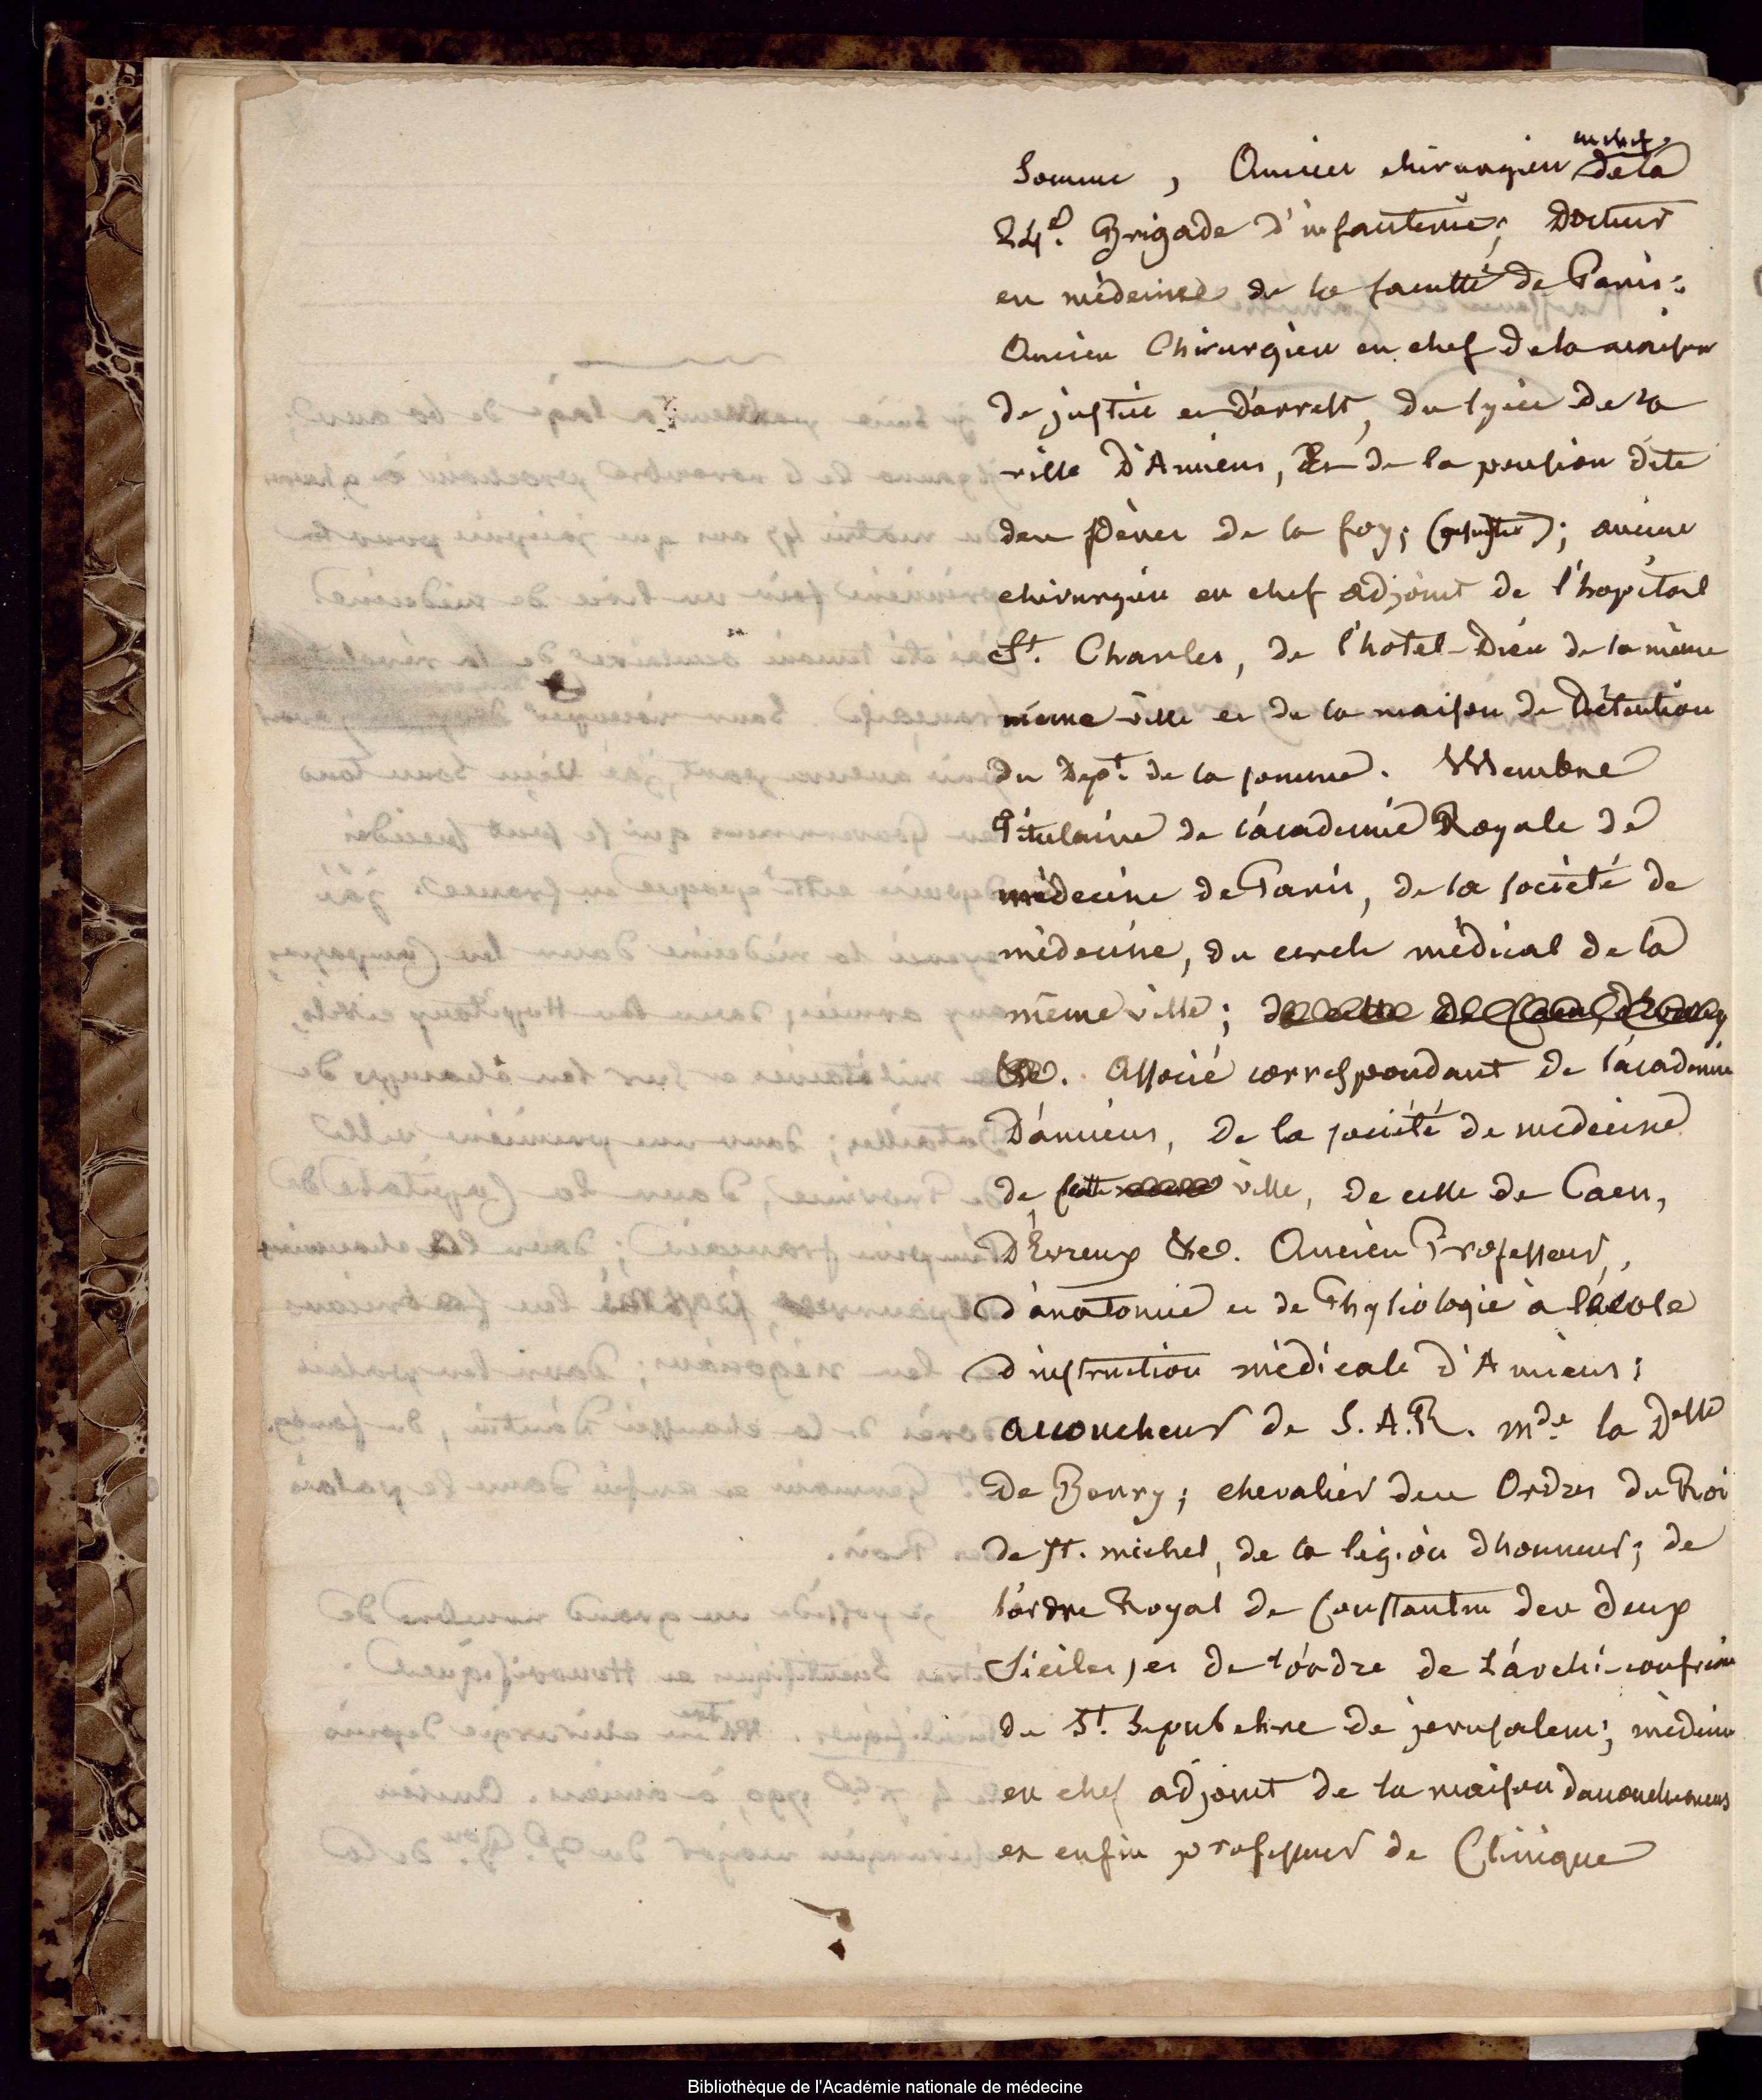 Somme, Ancien chirurgien en chef de la
24e. Brigade d'infanterie; Docteur
en médecine de la faculté de Paris:
Ancien Chirurgien en chef de la maison
de justice et d'arrest, du lycée de la
ville D'Amiens, Et de la pension dite
des pères de la foy; (jesuites); ancien
chirurgien en chef adjoint de l'hopital
St. Charles, de l'hotel-Dieu de la même
même ville et de la maison de Détention
du Dept. de la somme. Membre
Titulaire de l'académie Royale de
médecine de Paris, de la société de
médecine, du cercle médical de la
même ville; de celle de Caen,
&c. Associé correspondant de l'académie
D'amiens, de la société de médecine
de cette ville, de celle de Caen,
D'Evreux &c. Ancien Professeur,
d'anatomie et de Physiologie à l'école
d'instruction médicale d'Amiens;
accoucheur de S. A. R. mde la Desse
de Berry; chevalier des Ordres du Roi
de St. michel, de la légion dhonneur; de
l'ordre Royal de Constantin des deux
Siciles, et de l'ordre de l'archi-confrérie
du St. Sepulchre de jerusalem; médecin
en chef adjoint de la maison d'accouchemens
et enfin professeur de Clinique
Bibliothèque de l'Académie nationale de médecine